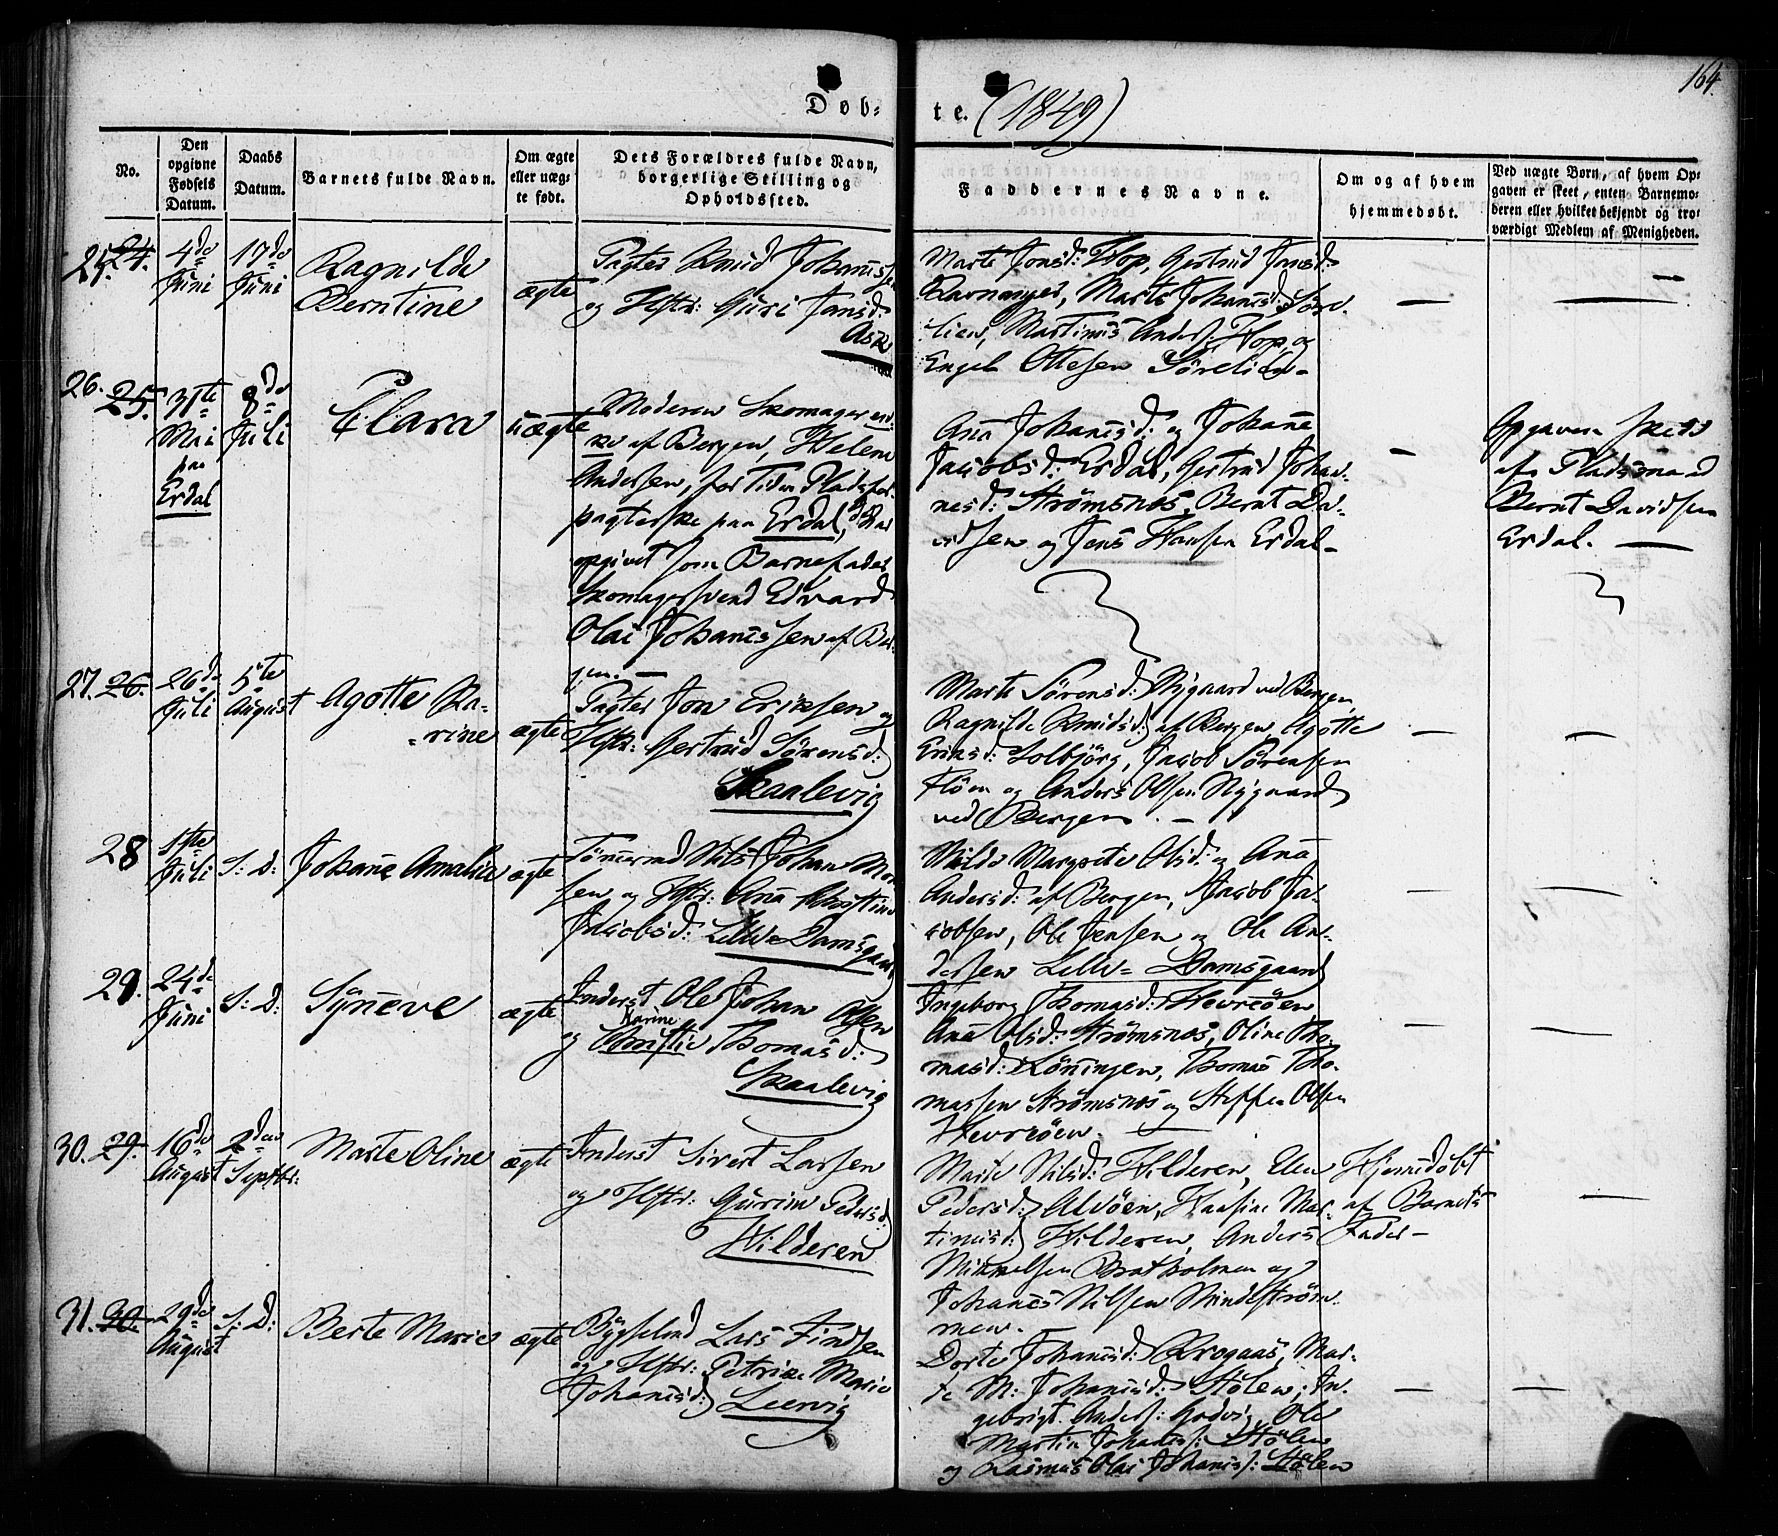 164.
Døb-
te. (1849)
No.
Den opgivne Fødsels Datum.
Daabs Datum.
Barnets fulde Navn.
Om ægte eller uægte født.
Dets Forældres fulde Navn, borgerlige Stilling og Opholdssted.
Faddernes Navne.
Om og af hvem hjemmedøbt.
Ved uægte Børn, af hvem Opgaven er skeet, enten Barnemoderen eller hvilket bekjendt og troværdigt Medlem af Menigheden.
25. 24.
4de Juni
17de Juni
Ragnilde
Berntine
ægte
Pagter Knud Johannessen
og Hstr: Guri Jansd:
Ask
Marte Jonsd: Hop, Gertrud Jansd:
Ravnanger, Marte Johannsd: Söre-
lien, Martinus Anders: Hop, og
Engel Ottesen Sörelien -
26. 25.
31te Mai paa Erdal
8de Juli
Clara
uægte
Moderen Skomageren-
ke af Bergen, Helene
Andersen, for Tiden Pladsfor-
pagterske paa Erdal, har
opgivet som Barnefader
Skomagersvend Edvard
Olai Johannessen af Ber-
gen. -
Ana Johannsd: og Johane
Jacobsd: Erdal, Gertrud Johan-
nesd: Strømsnæs, Bernt Da-
vidsen og Jens Hansen Erdal -
Opgaven skeed
af Pladsmand
Bernt Davidsen
Erdal. -
27. 26.
26de Juli
5te August
Agotte Ka-
rine
ægte
Pagter Jon Eriksen og
Hstr: Gertrud Sörensd:
Skaalevig
Marte Sörensd: Nygaard ved Bergen,
Ragnilde Knudsd: af Bergen, Agotte
Eriksd: Solbjörg, Jacob Sörensen
Flöen og Anders Olsen Nygaard
ved Bergen. -
28
1ste Juli
S: D:
Johane Amalie
ægte
Tömmermd Nils Johan Mon-
sen og Hstr: Ana Christine
Jacobsd: Lille Damsgaard
Milde Margrete Olsd: og Ana
Andersd: af Bergen, Jacob Ja-
cobsen, Ole Jensen og Ole An-
dersen Lille-Damsgaard
29.
24de Juni
S: D:
Syneve
ægte
Inderst Ole Johan Olsen
Karine
og Christie Thomasd:
Skaalevig
Ingeborg Thomasd: Hevröen,
Ana Olsd: Strømsnæs, Oline Tho-
masd: Löningen, Thomas Tho-
massen Strømsnæs og Steffen Olsen
Hevröen.
30. 29.
16de August
2den Septbr:
Marte Oline
ægte
Inderst Sivert Larsen
og Hstr: Gurine Pedersd:
Hilderen
Marte Nilsd: Hilderen, Elen
Pedersd: Alvöen, Hansine Mar-
tinusd: Hilderen, Anders
Mikkelsen Bratholmen og
Johannes Nilsen Mindeström-
men.
Hjemmedöbt
af Barnets
Fader -
31. 30.
29de August
S: D:
Berte Marie
ægte
Bygselmd Lars Findsen
og Hstr: Petrine Marie
Johannsd: Leervig
Dorte Johannsd: Krogaas, Mar-
te M: Johannsd: Stölen, In-
gebrigt Anders: Godvig, Ole
Martin Johanns: Stölen
og Rasmus Olai Johanns: Stölen